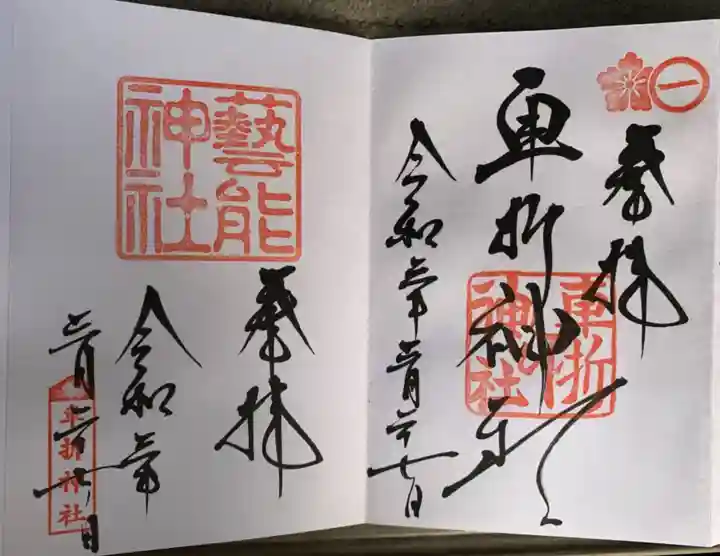 奉拝
車折神社
車折神社
令和三年三月二十七日
藝能神社
奉拝
令和三年
三月二十七日
車折神社